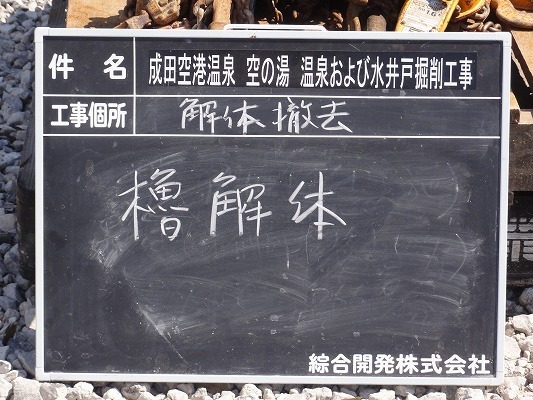 件名 成田空港温泉 空の湯 温泉および水井戸掘削工事
工事個所 解体撤去
櫓解体
綜合開発株式会社